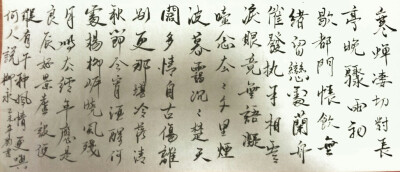 寒蟬淒切對長
亭晚驟雨初
歇都門帳飲無
緒留戀處蘭舟
催發執手相看
淚眼竟無語凝
噎念去々千里煙
波暮靄沉々楚天
闊多情自古傷離
別更那堪冷落清
秋節今宵酒醒何
處楊柳岸曉風殘
月此去經年應是
良辰好景虛設便
縱有千種風情更與
何人說 柳永